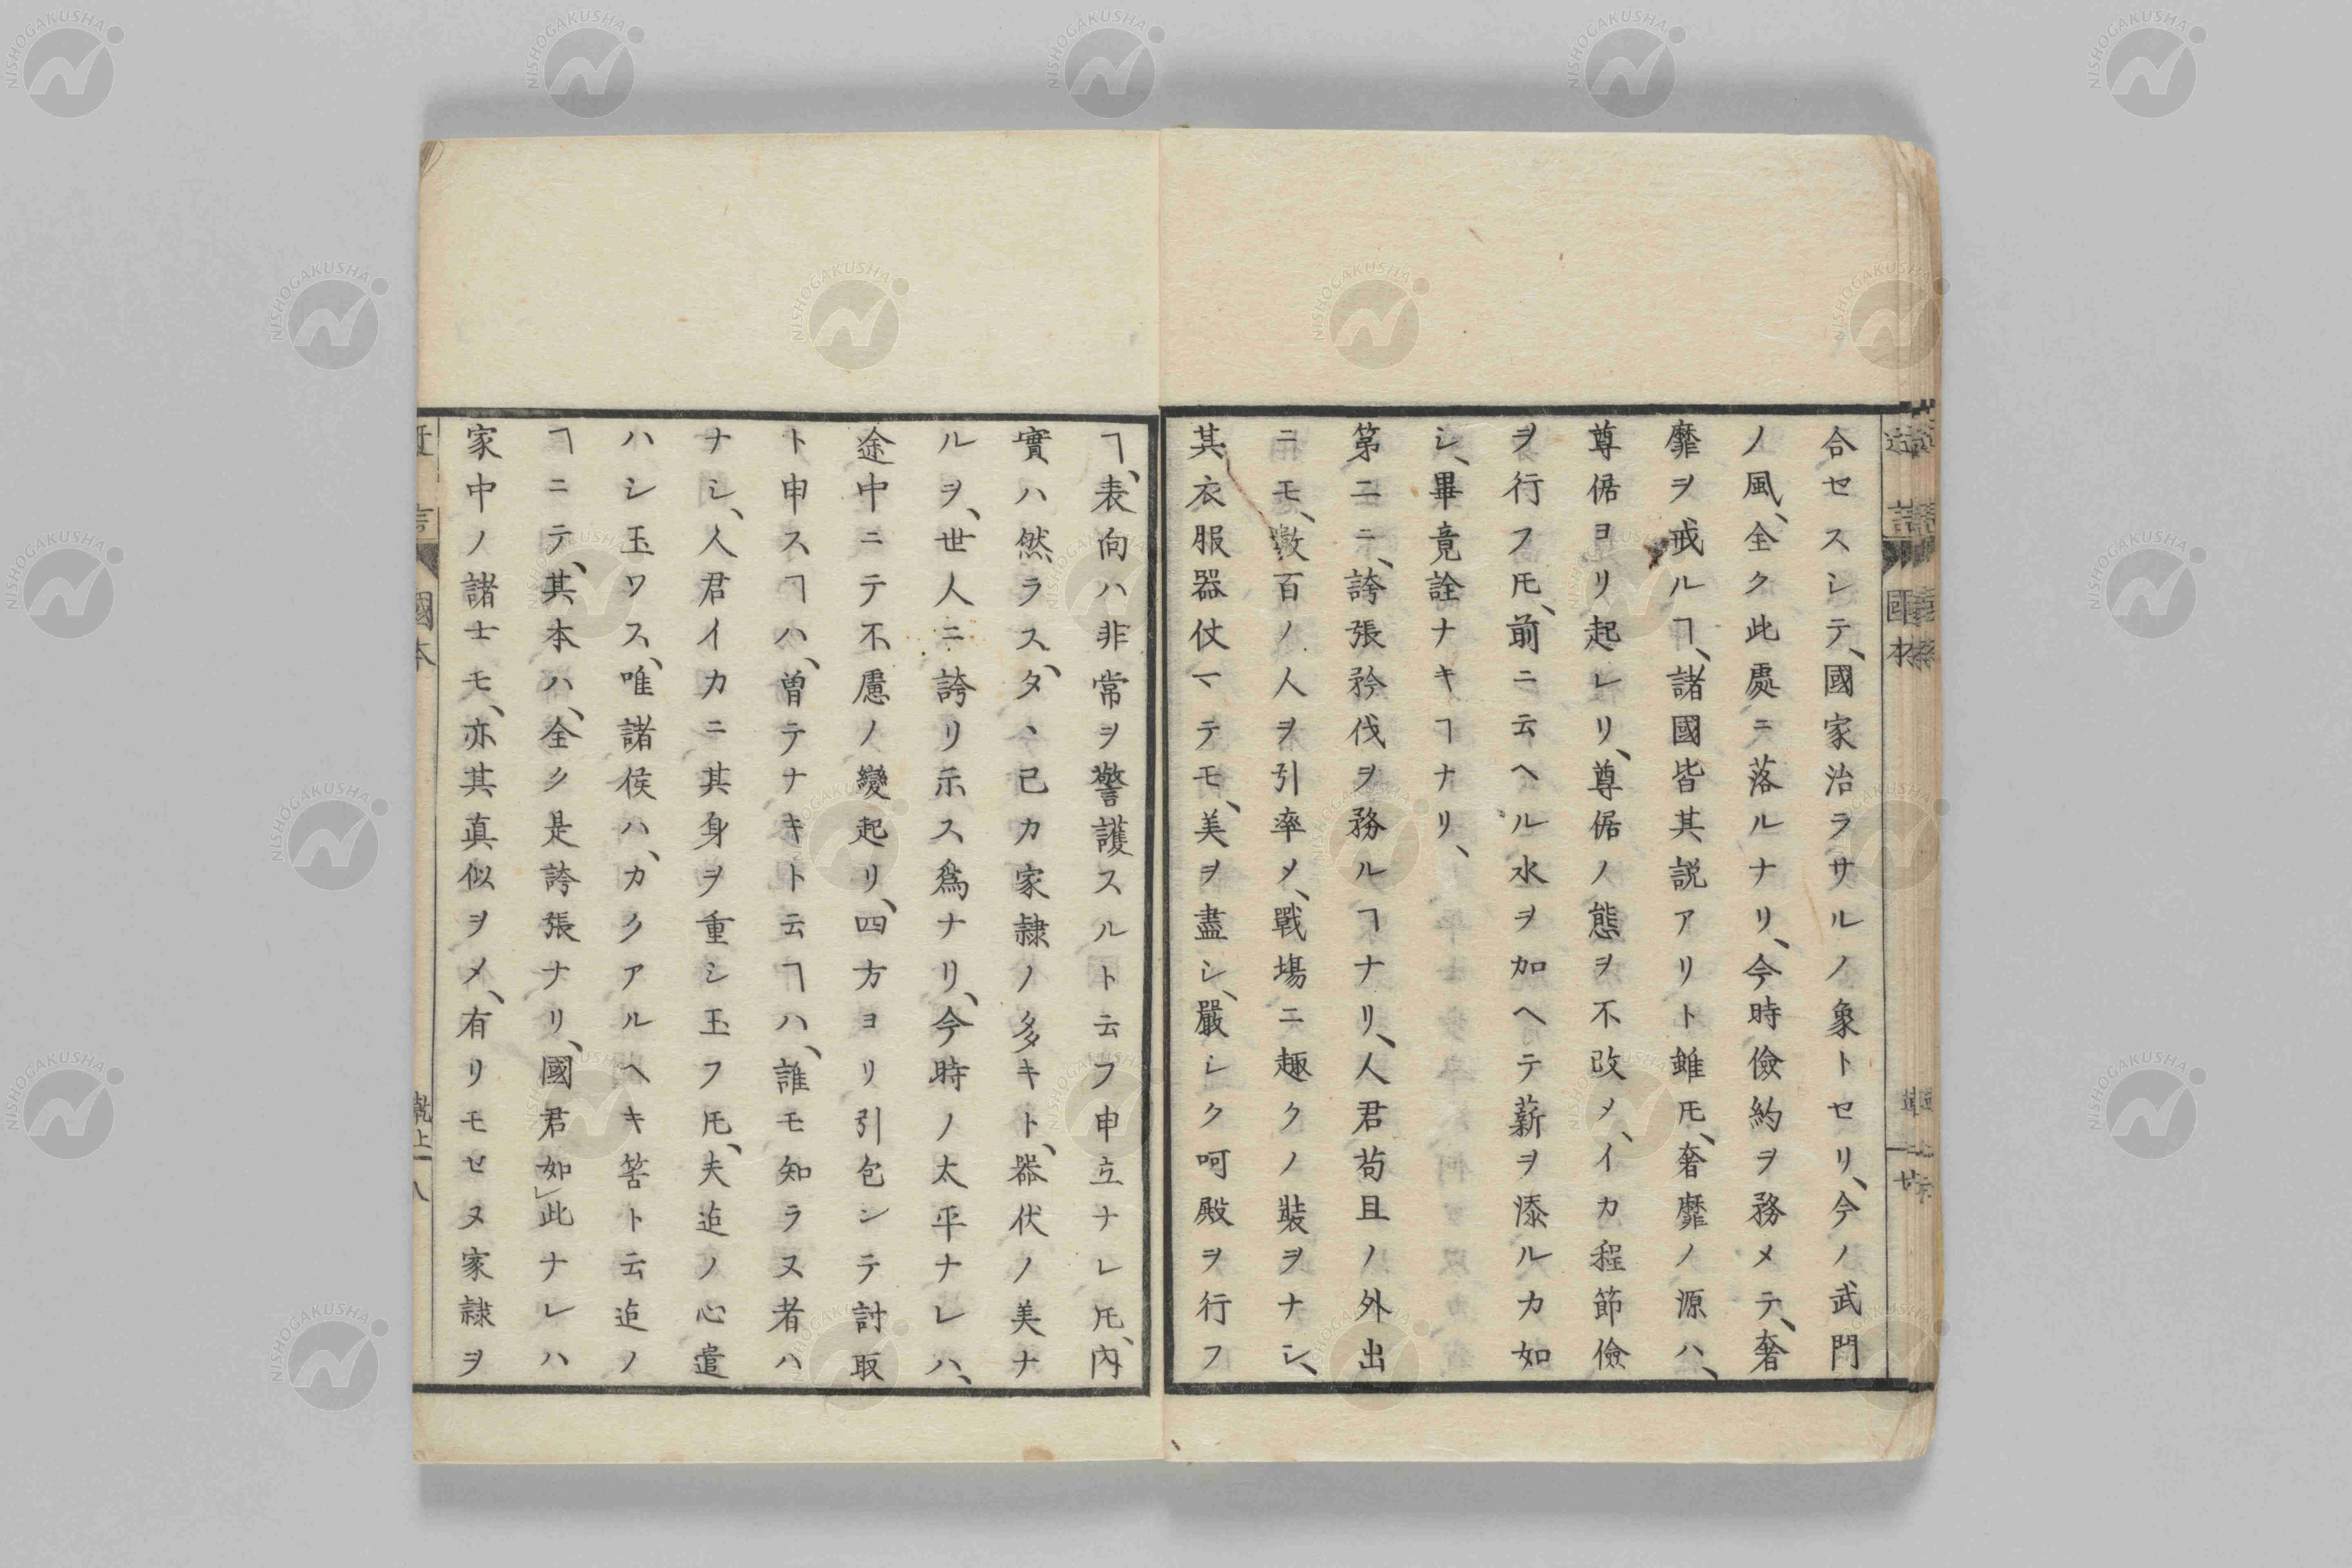 合セスシテ、國家治ラサルノ象トセリ、今ノ武門
ノ風、全ク此處ニ落ルナリ、今時儉約ヲ務メテ、奢
靡ヲ戒ルヿ、諸國皆其説アリト雖𪜈、奢靡ノ源ハ、
尊倨ヨリ起レリ、尊倨ノ態ヲ不改メ、イカ程節儉
ヲ行フ𪜈、前ニ云ヘル水ヲ加ヘテ薪ヲ添ルカ如
シ、畢竟詮ナキヿナリ、
第二ニ、誇張矜伐ヲ務ルヿナリ、人君苟且ノ外出
ニモ、數百ノ人ヲ引率メ、戰塲ニ趣クノ裝ヲナシ、
其衣服器仗マテモ、美ヲ盡シ、嚴シク呵殿ヲ行フ
ヿ、表向ハ非常ヲ警護スルト云フ申立ナレ𪜈、內
實ハ然ラス、タヽ己カ家隷ノ多キト、器伏ノ美ナ
ルヲ、世人ニ誇リ示ス爲ナリ、今時ノ太平ナレハ、
途中ニテ不慮ノ變起リ、四方ヨリ引包シテ討取
ト申スヿハ、曽テナキト云ヿハ、誰モ知ラヌ者ハ
ナシ、人君イカニ其身ヲ重シ玉フ𪜈、夫迠ノ心遣
ハシ玉ワス、唯諸侯ハ、カクアルヘキ筈ト云迠ノ
ヿニテ、其本ハ、全ク是誇張ナリ、國君如此ナレハ
家中ノ諸士モ、亦其真似ヲメ、有リモセヌ家隷ヲ
國本